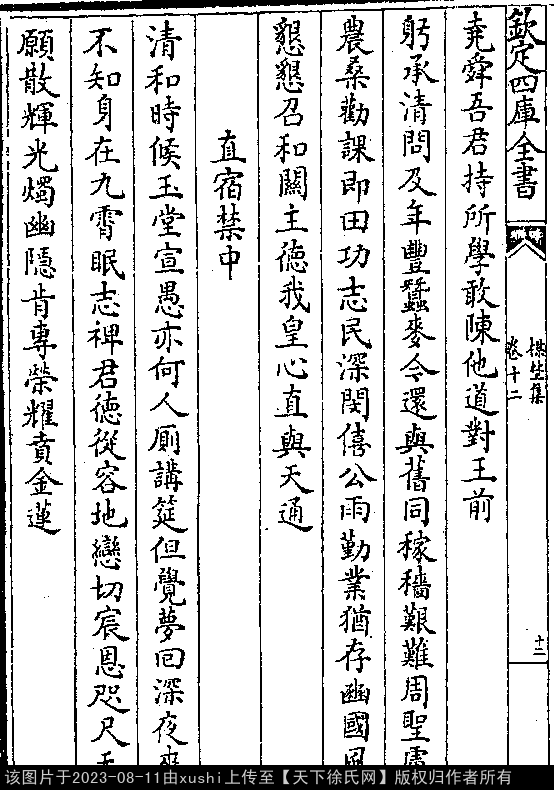 欽定四庫全書
楳埜集
卷十二
十二
堯舜吾君持所學敢陳他道對王前
躬承清問及年豐蠶麥今還與舊同稼穡艱難周聖
農桑勸課即田功志民深閔僖公雨勤業猶存豳國風
懇懇召和關主德我皇心直與天通
直宿禁中
清和時候玉堂宣愚亦何人厠講筵但覺夢回深夜
不知身在九霄眠志裨君德從容地戀切宸恩咫尺
願散輝光燭幽隱肯專榮耀賁金蓮
该图片于2023-08-11由xushi上传至【天下徐氏网】版权归作者所有